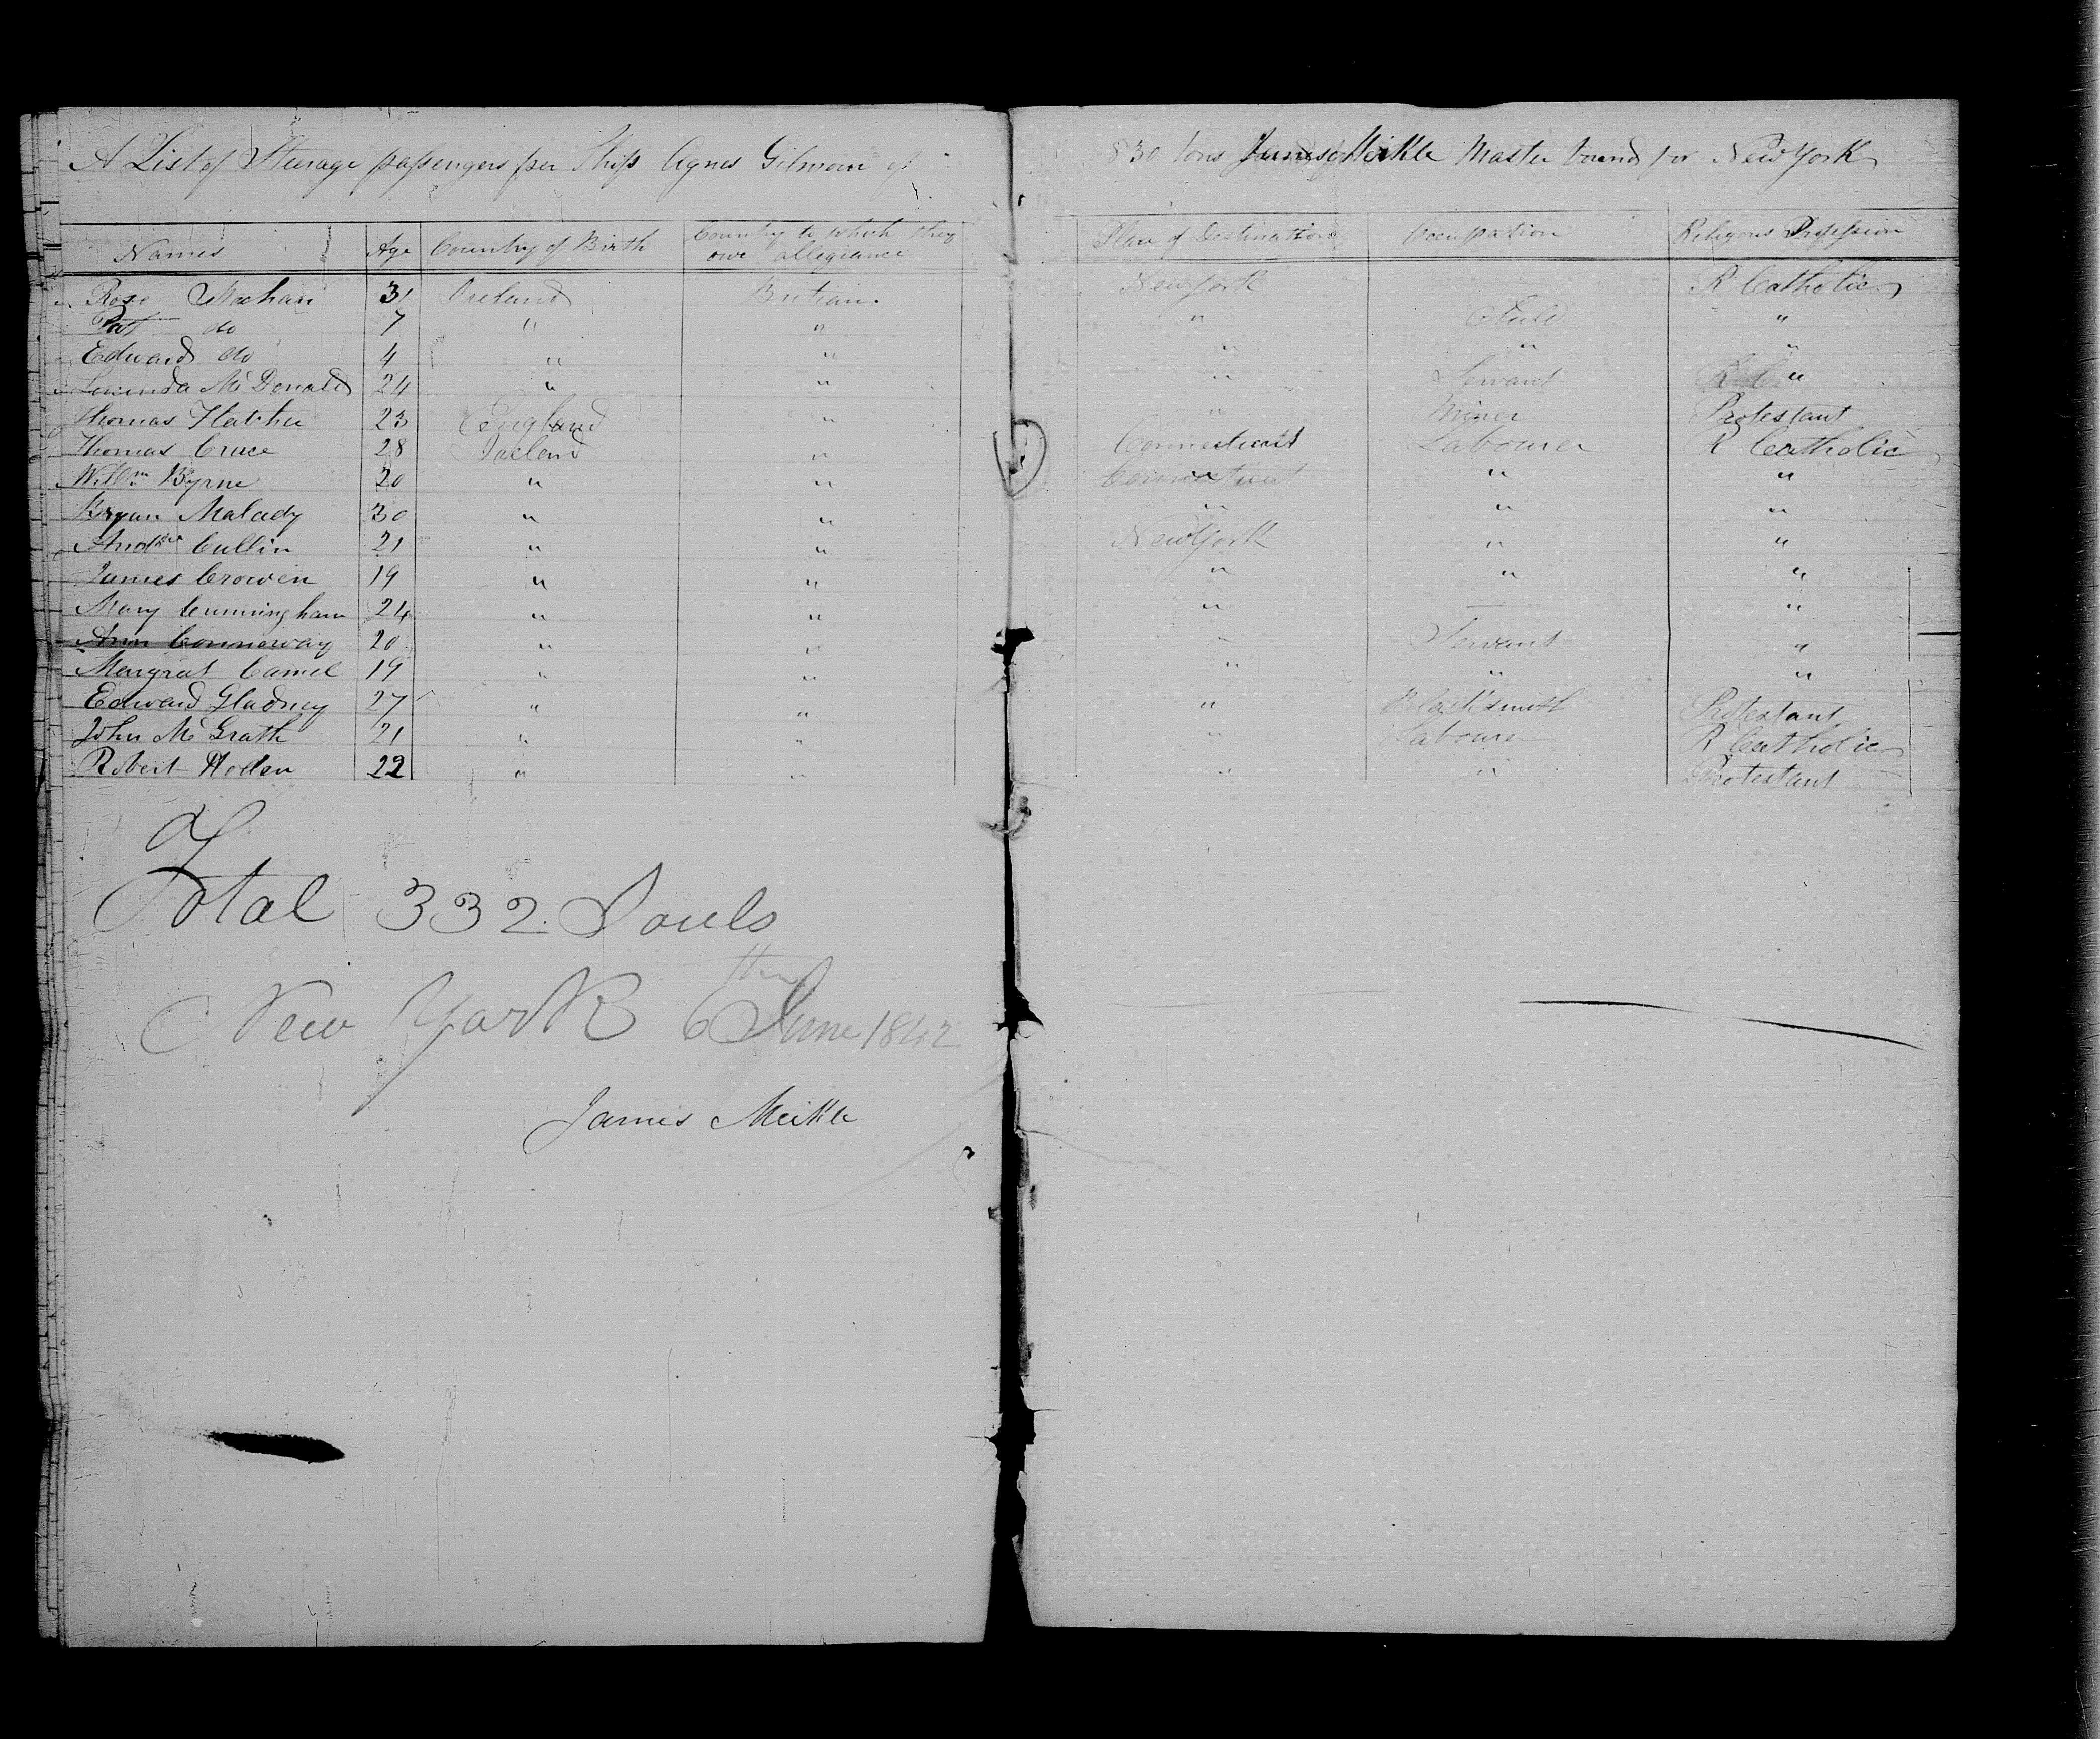 A List of Steerage passengers per Ship Agnes Gilmour of 830 tons James Meikle Master bound for New York
Names Age Country of Birth Country to which they owe allegiance Place of Destination Occupation Religious Profession
Rose 31 Ireland Britian. New York — R Catholic
Pat do 7 " " " Child "
Edward do 4 " " " " "
McDonald 24 " " " Servant "
Thomas Flatcher 23 England " " Miner Protestant
Thomas Cruce 28 Ireland " Connecticut Labourer R Catholic
Willm Byrne 20 " " Connecticut " "
Bryan Malady 30 " " " " "
Andrew Cullin 21 " " New York " "
James Crowen 19 " " " " "
Mary Cunningham 24 " " " — "
Ann Connoway 20 " " " Servant "
Margrat Camel 19 " " " " "
Edward Gladney 27 " " " Blacksmith Protestant
John McGrath 21 " " " Labourer R Catholic
Robert Holden 22 " " " " Protestant
Total 332 Souls
New York 6th June 1842
James Meikle